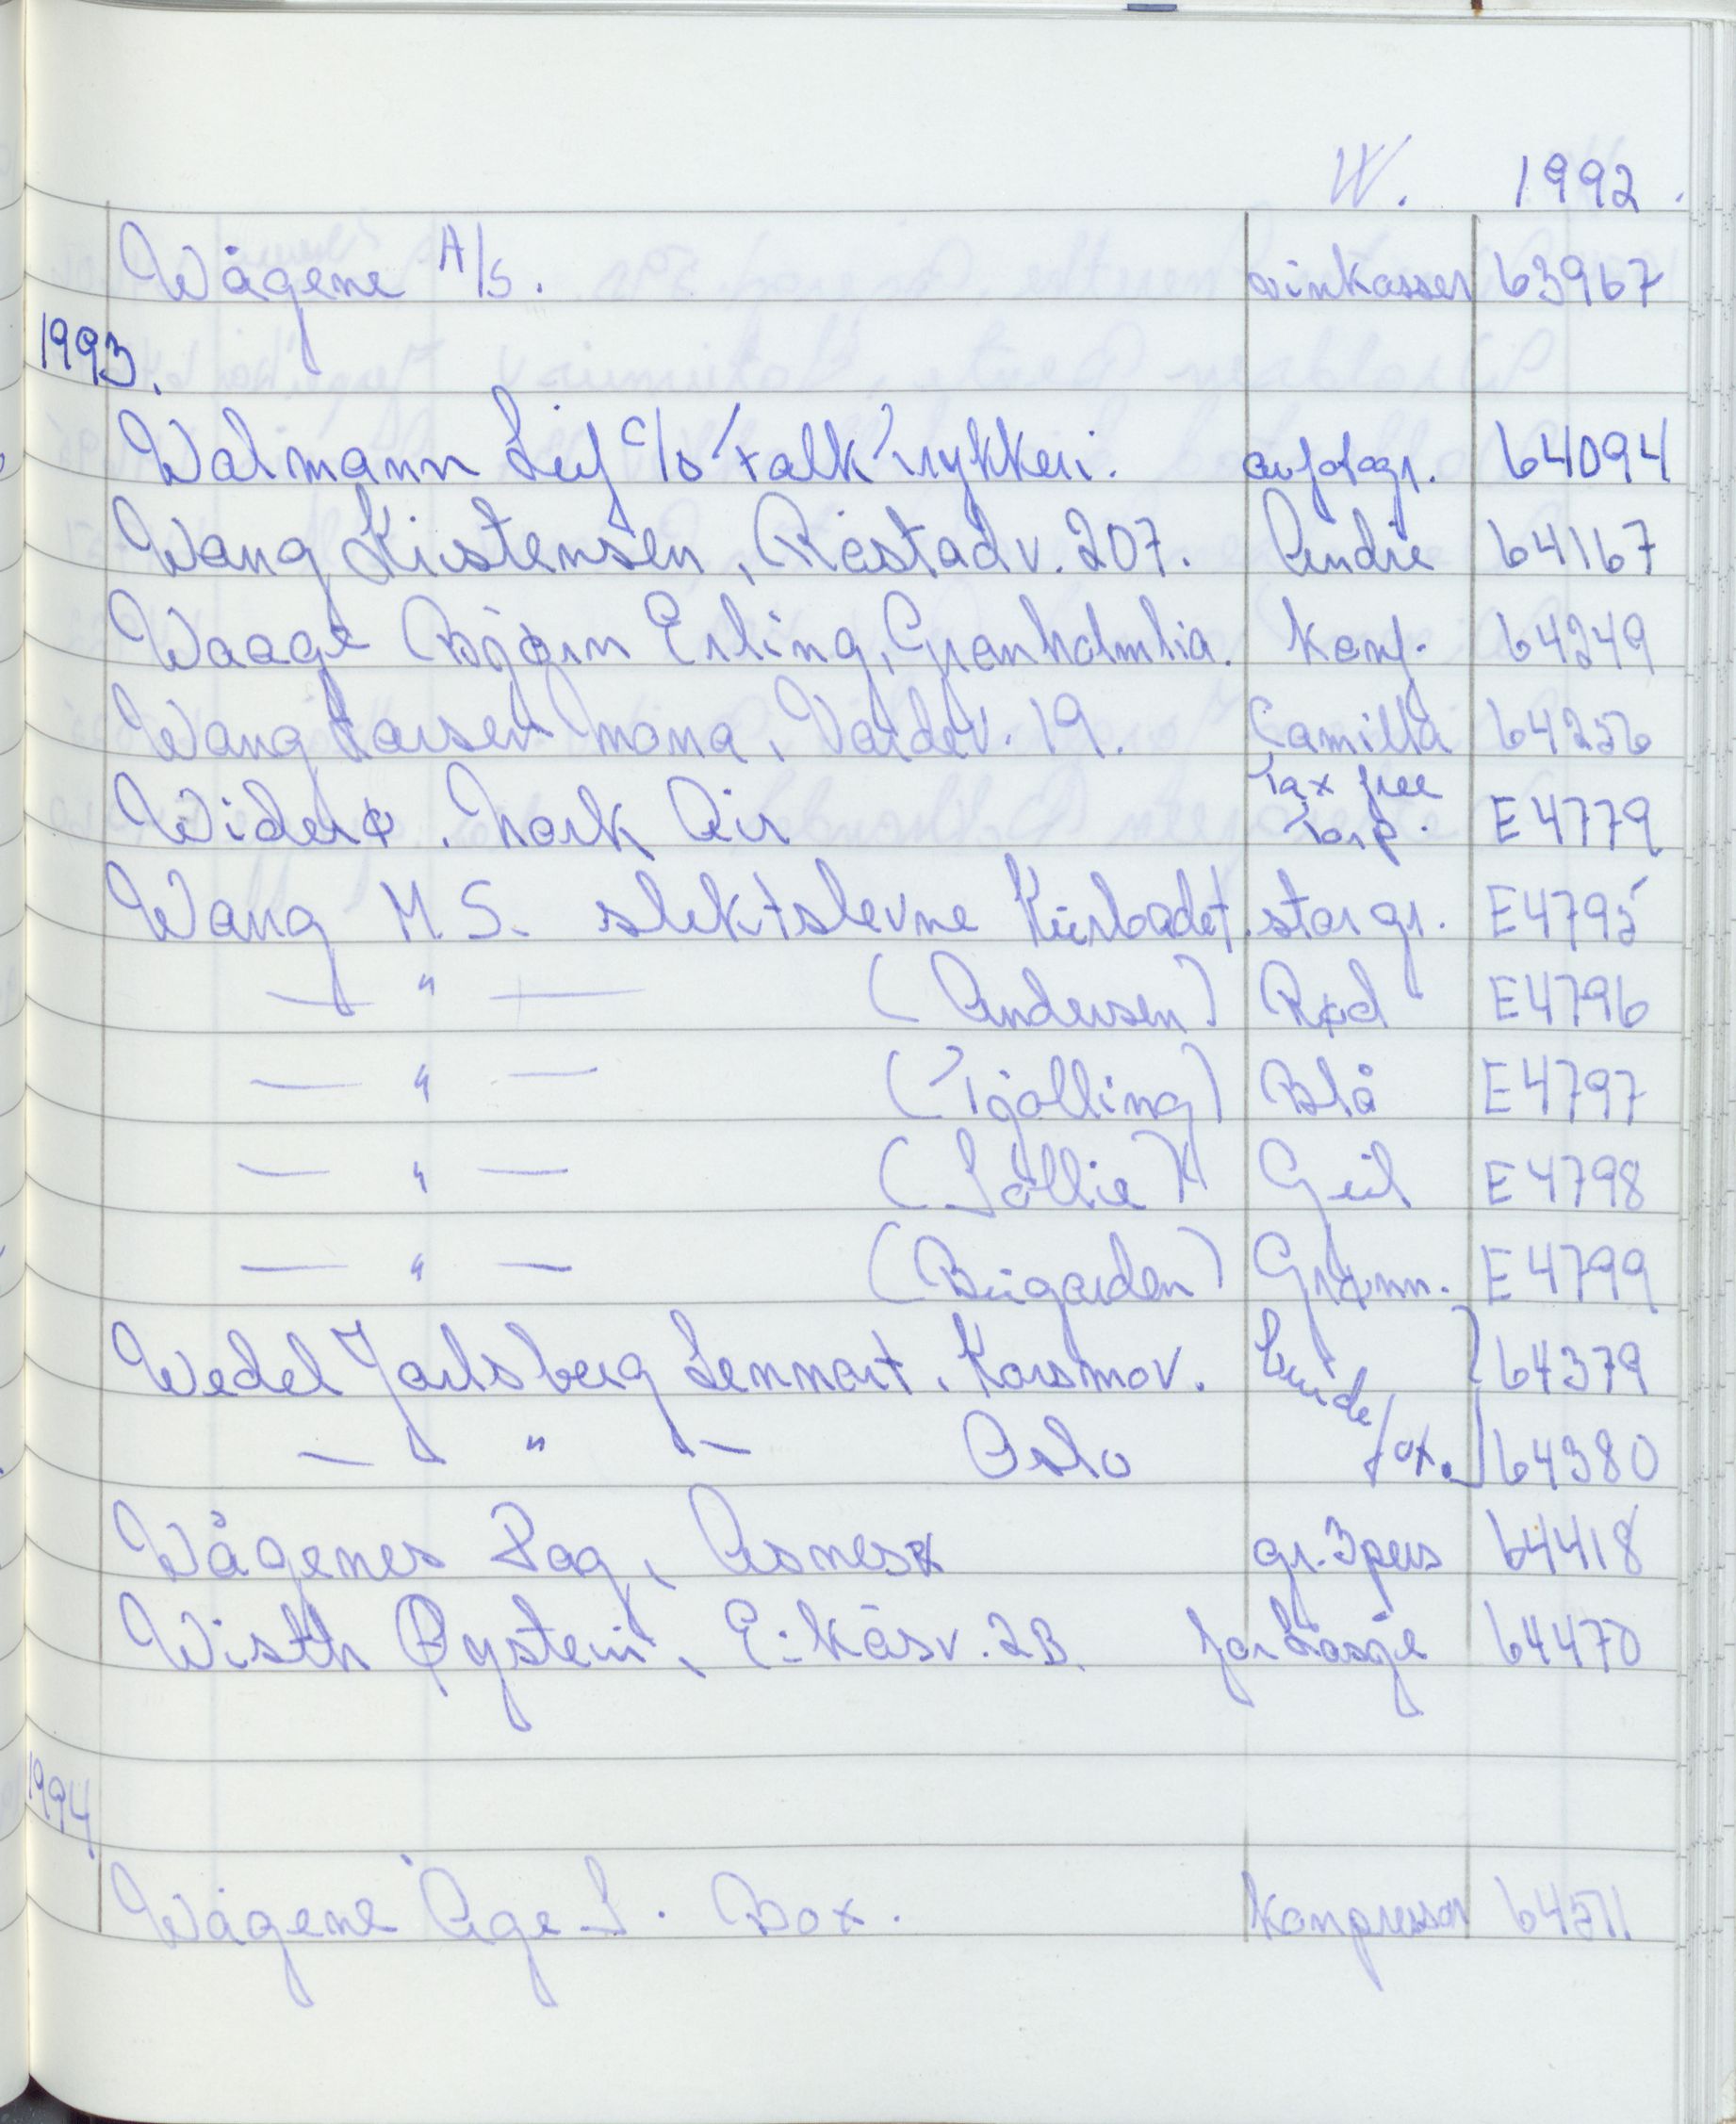 W. 1992.
Wågene A/S. vinkasser 63967
1993.
Walmann Leif c/o Falk Trykkeri. avfotogr. 64094
Wang Kristensen, Råstadv. 207. Andre 64167
Waage Bjørn Erling, Granholmlia. Konf. 64249
Wang Larsen Mona, Vardev. 19. Camilla 64256
Widerø. Norsk Air Tax free Torp. E4779
Wang M.S. slektstevne Kurbadet. stor gr. E4795
— " — (Andersen) Rød E4796
— " — (Tjølling) Blå E4797
— " — (Løllie) Gul E4798
— " — (Bugården) Grønn. E4799
Wedel Jarlsberg Lennart, Korsmov. 64379
— " — Oslo 64380
Wågenes Dag, gr. 3 pers 64418
Wisth Øystein, Eikåsv. 23. 64470
1994
Wågene Åge L. Box. Kompressor